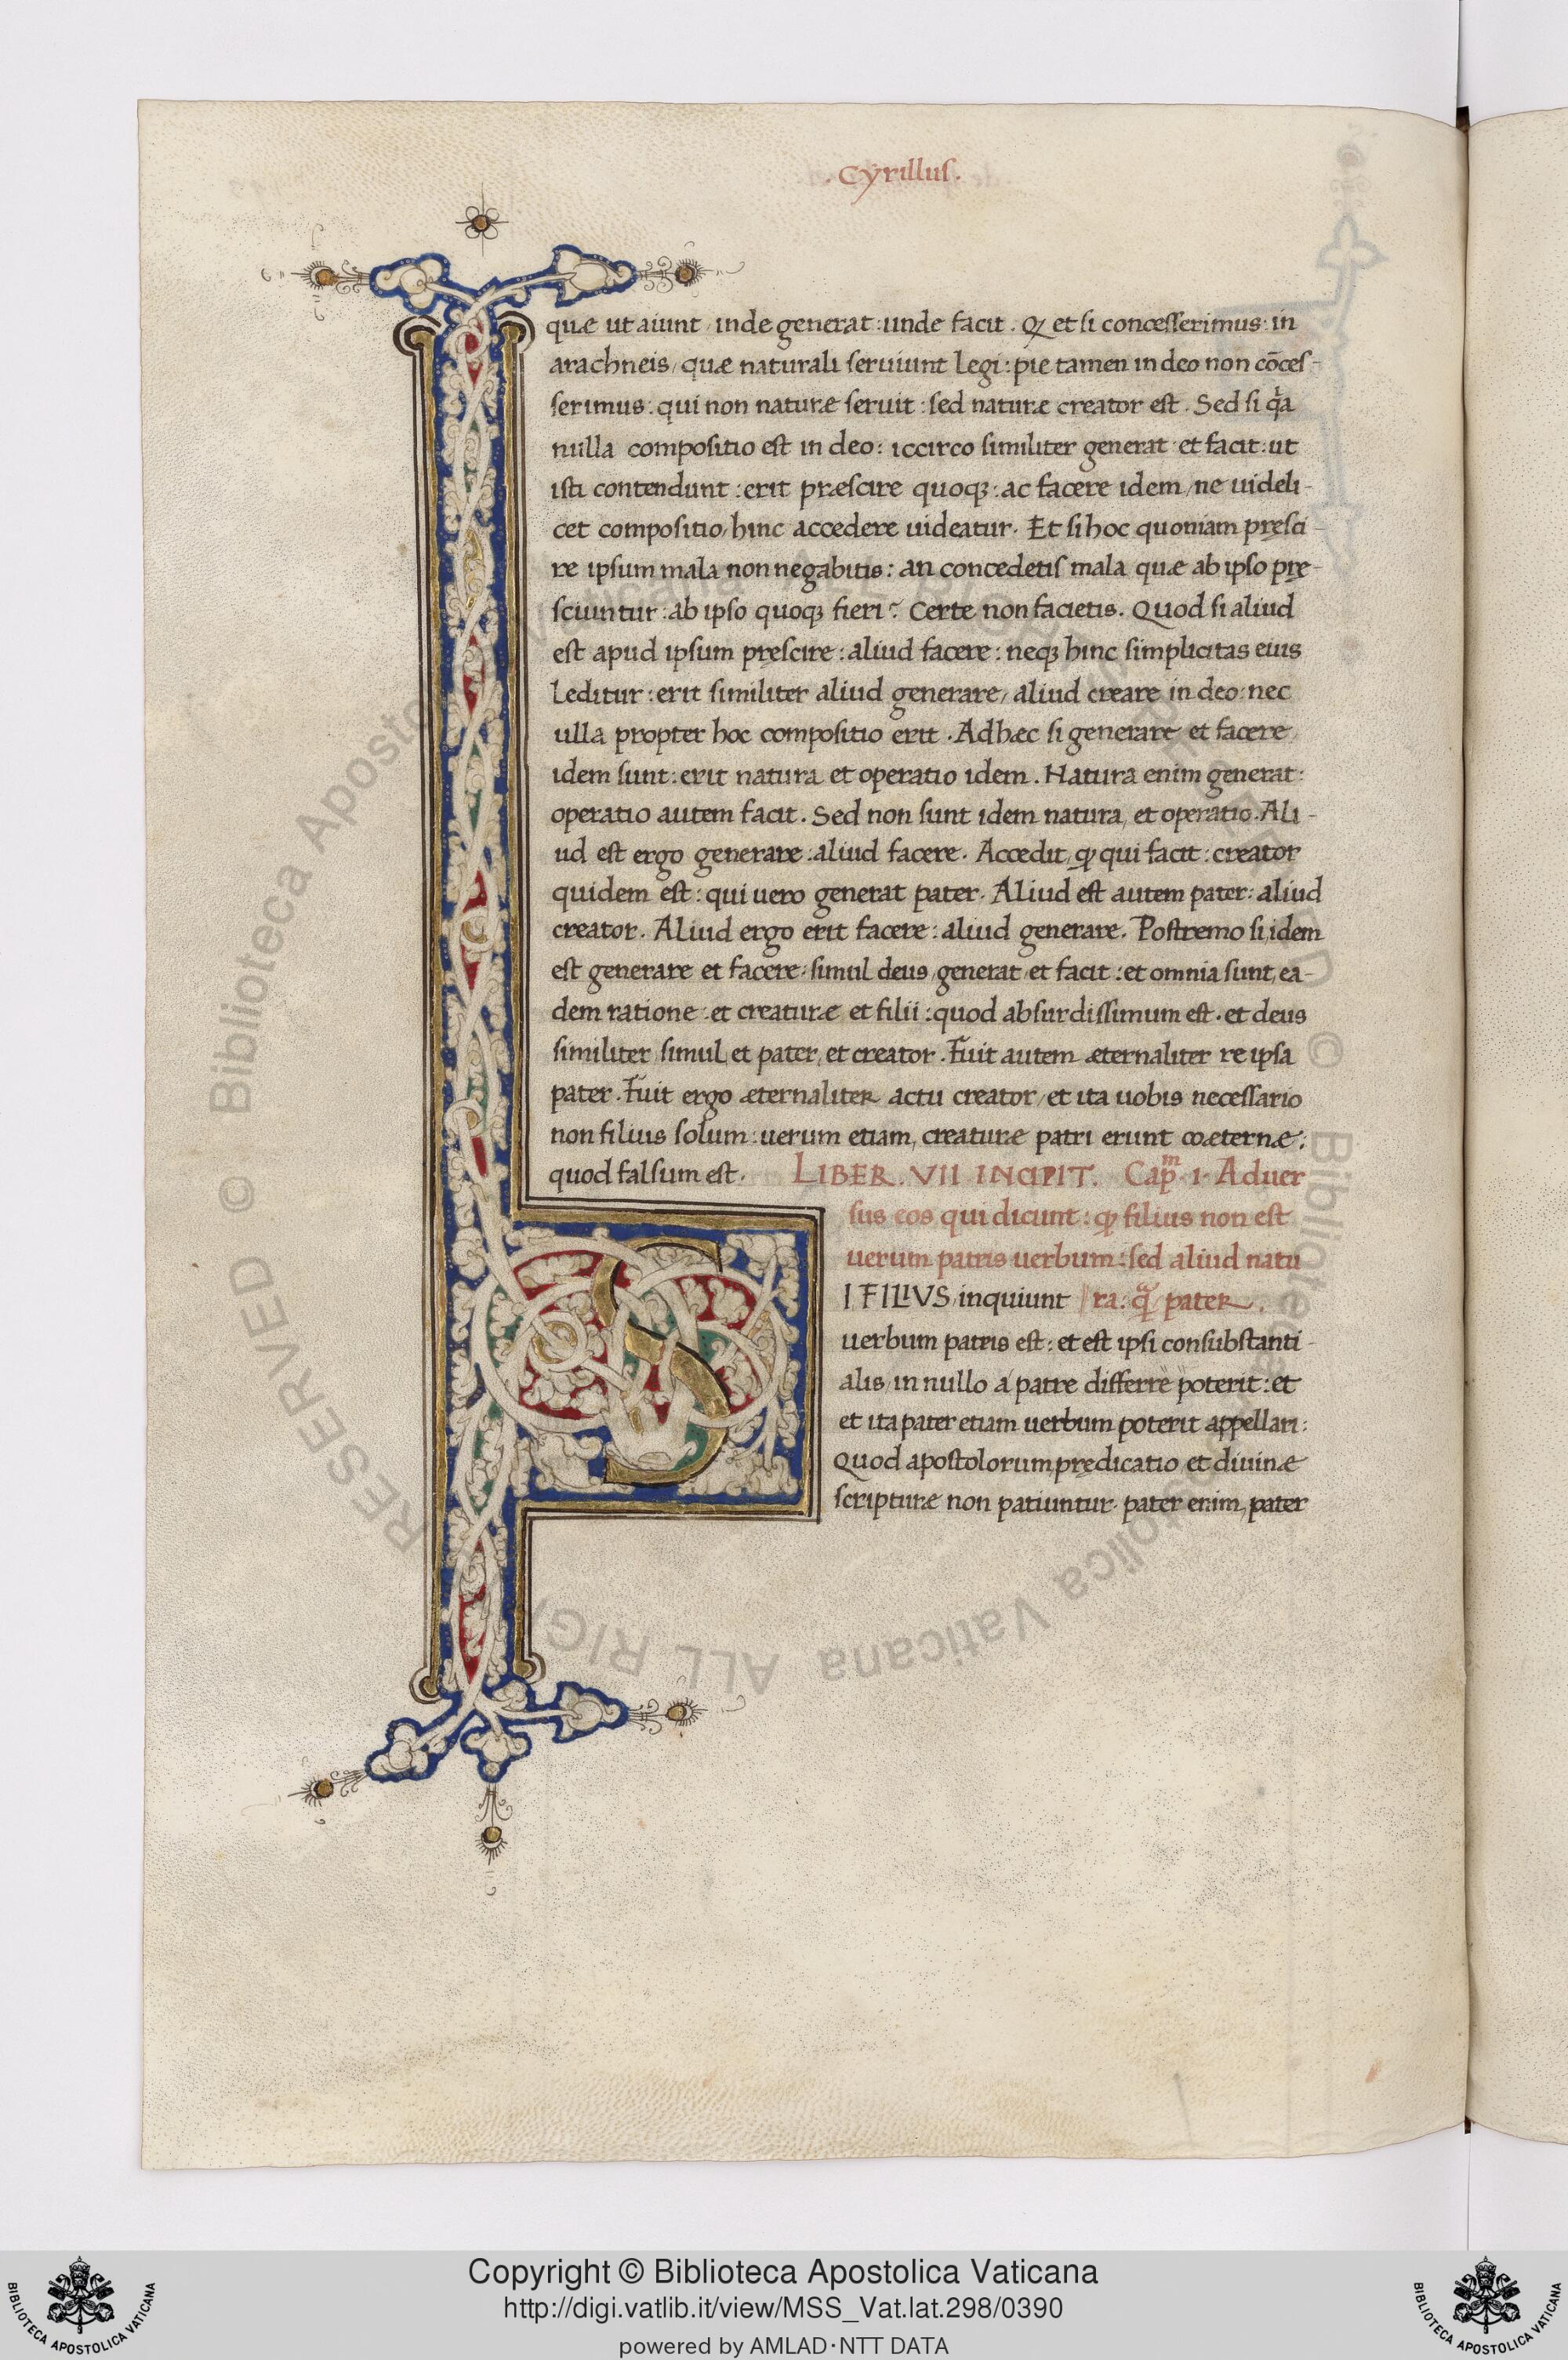 . Cyrillus .
quæ ut aiunt / inde generat : unde facit . Qꝫ et si concesserimus : in
arachneis / quæ naturali seruiunt legi : pie tamen in deo non cōces-
serimus : qui non naturæ seruit : sed naturæ creator est . Sed si qͣa
nulla compositio est in deo : iccirco similiter generat et facit : ut
isti contendunt : erit præscire quoqꝫ : ac facere idem / ne uideli-
cet compositio / hinc accedere uideatur . Et si hoc quoniam pręsci-
re ipsum mala non negabitis : an concedetis mala quæ ab ipso prę-
sciuntur : ab ipso quoqꝫ fieri ? Certe non facietis . Quod si aliud
est apud ipsum pręscire : aliud facere : neqꝫ hinc simplicitas eius
leditur : erit similiter aliud generare / aliud creare in deo : nec
ulla propter hoc compositio erit . Adhæc si generare et facere
idem sunt : erit natura et operatio idem . Natura enim generat :
operatio autem facit . Sed non sunt idem natura, et operatio . Ali-
ud est ergo generare : aliud facere . Accedit, qꝫ qui facit : creator
quidem est : qui uero generat pater . Aliud est autem pater : aliud
creator . Aliud ergo erit facere : aliud generare . Postremo si idem
est generare et facere : simul deus generat et facit : et omnia sunt, ea-
dem ratione : et creaturæ et filii : quod absurdissimum est . et deus
similiter simul, et pater, et creator . Fuit autem æternaliter re ipsa
pater . Fuit ergo æternaliter actu creator / et ita uobis necessario
non filius solum : uerum etiam, creaturæ patri erunt coæternæ :
quod falsum est . LIBER . VII INCIPIT . Capᵐ . 1 . Aduer
sus eos qui dicunt : qꝫ filius non est
uerum patris uerbum : sed aliud natu
ra : qͣ pater .
SI FILIVS / inquiunt
uerbum patris est : et est ipsi consubstanti-
alis / in nullo á patre differre poterit : et
et ita pater etiam uerbum poterit appellari :
Quod apostolorum prędicatio et diuinæ
scripturæ non patiuntur . pater enim, pater
RESERVED © Biblioteca Apostolica Vaticana ALL RIGHTS RESERVED © Biblioteca Apostolica Vaticana ALL RIG
Copyright © Biblioteca Apostolica Vaticana
http://digi.vatlib.it/view/MSS_Vat.lat.298/0390
powered by AMLAD·NTT DATA
BIBLIOTECA APOSTOLICA VATICANA
BIBLIOTECA APOSTOLICA VATICANA